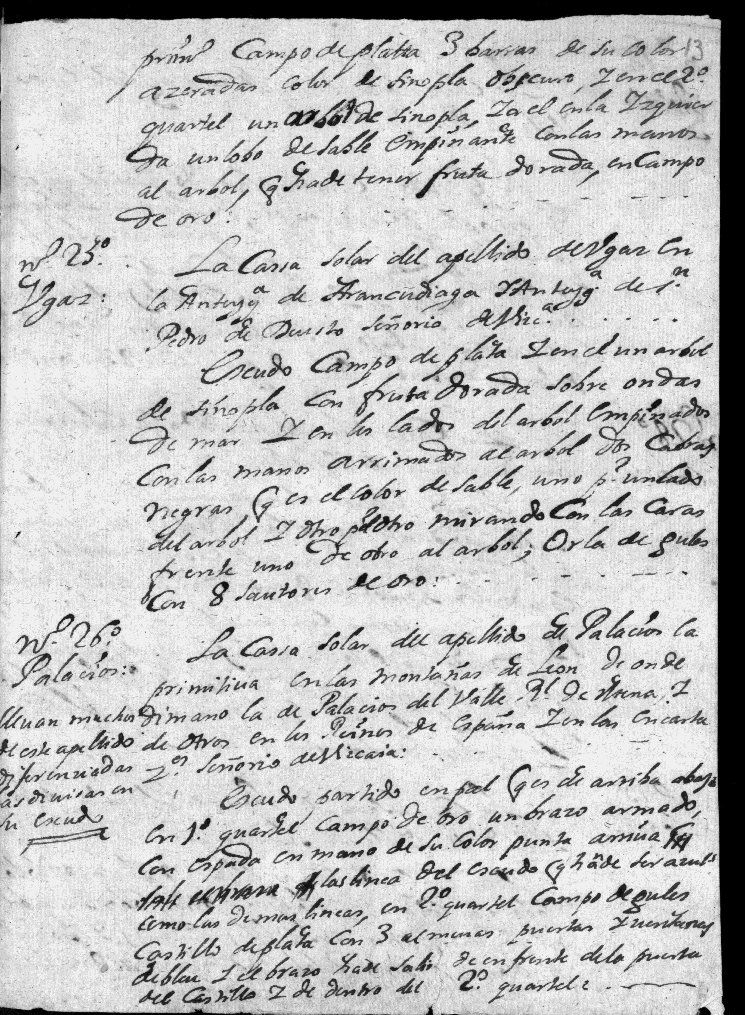 13
prim.º Campo de plata 3 barras de su color
azeradas color de sinopla obscuro, Y en el 2.º
quartel un arbol de sinopla, Y a el en la Yzquier
da un lobo de sable empinante con las manos
al arbol, q̃ ha de tener fruta dorada, en Campo
de oro:
n.º 25.º
Vgaz:
La Cassa solar del apellido de Vgaz en
la Anteygª de Arancudiaga Y Anteygª de S.n
Pedro de Deusto Señorio de Vizcª
Escudo Campo de plata Y en el un arbol
de sinopla con fruta dorada sobre ondas
de mar Y en los lados del arbol empinados
con las manos arrimados al arbol dos Cabras
negras q̃ es el color de sable, uno pr un lado
del arbol Y otro pr el otro mirando con las caras
frente uno de otro al arbol; Orla de gules
Con 8 sautores de oro:
n.º 26.º
Palacios:
La Cassa solar del apellido de Palacios la
primitiua en las montañas de Leon de onde
dimano la de Palacios del Valle Rl de Mena, Y
de otros en los Reinos de España Y en las encarta
nes Señorio de Vizcaia:
lleuan muchos
de este apellido
diferenciadas
las diuisas en
su escudo
Escudo partido en pal q̃ es de arriba abajo
en 1.º quartel Campo de oro un brazo armado,
con espada en mano de su color punta arriua
las linea del escudo q̃ ha de ser azul
como las demas lineas, en 2.º quartel Campo de gules
Castillo de plata con 3 almenas puertas Y uentanas
de bleu Y el brazo ha de salir de en frente de la puerta
del Castillo Y de dentro del 2.º quartel: